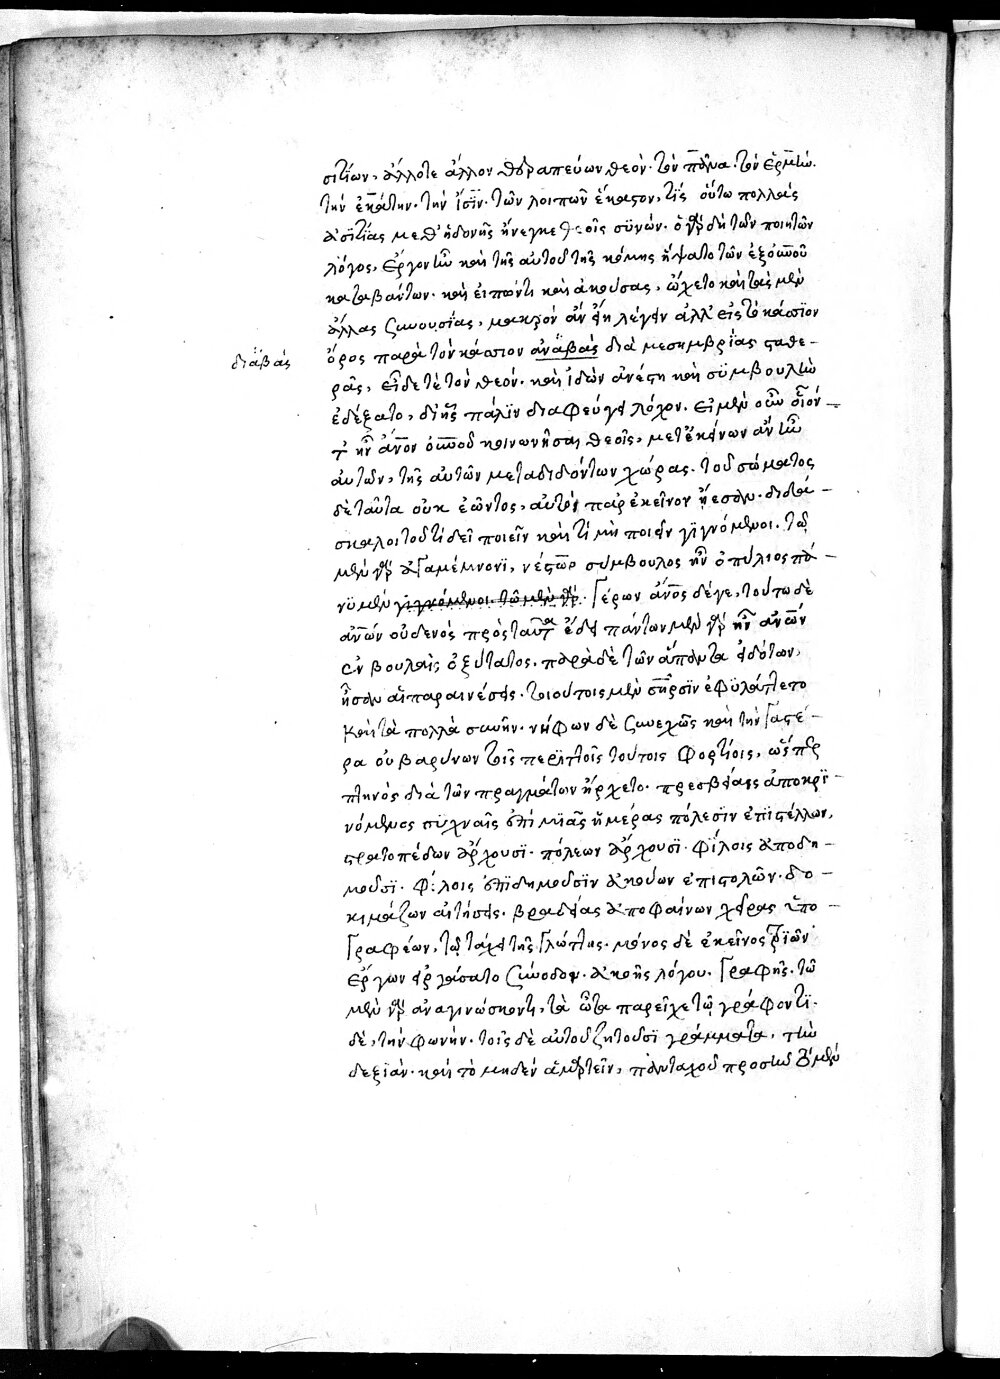 σιτίων, ἄλλοτε ἄλλον θεραπεύων θεόν· τὸν πᾶνα· τὸν ἑρμῆν·
τὴν ἑκάτην· τὴν ἴσιν· τῶν λοιπῶν ἕκαστον, τίς οὕτω πολλὰς
ἀσιτίας μεθ' ἡδονῆς ἤνεγκε θεοῖς συνών· ὁ γὰρ δὴ τῶν ποιητῶν
λόγος, ἔργον ἦν καὶ τῆς αὐτοῦ τῆς κόμης ἥψατο τῶν ἐξ οὐρανοῦ
καταβάντων· καὶ εἰπών τι καὶ ἀκούσας, ᾤχετο καὶ τὰς μὲν
ἄλλας συνουσίας, μακρὸν ἂν εἴη λέγειν ἀλλ' εἰς τὸ κάσιον
ὄρος παρὰ τὸν κάσιον ἀναβὰς διὰ μεσημβρίας σταθε-
διαβὰς
ρᾶς, εἶδέ τε τὸν θεόν· καὶ ἰδὼν ἀνέστη καὶ συμβουλὴν
ἐδέξατο, δι' ἧς πάλιν διαφεύγει λόχον. εἰ μὲν οὖν οἷόν
τ' ἦν ἄνθρωπον οὐρανοῦ κοινωνῆσαι θεοῖς, μετ' ἐκείνων ἂν ἦν
αὐτῶν, τῆς αὐτῶν μεταδιδόντων χώρας. τοῦ σώματος
δὲ ταῦτα οὐκ ἐῶντος, αὐτοὶ παρ' ἐκεῖνον ᾔεσαν· διδά-
σκαλοι τοῦ τί δεῖ ποιεῖν καὶ τί μὴ ποιεῖν γιγνόμενοι. τῷ
μὲν γὰρ ἀγαμέμνονι, νέστωρ σύμβουλος ἦν ὁ πύλιος πά-
νυ μὲν γιγνόμενοι. τῷ μὲν γὰρ. γέρων ἄνθρωπος δέ γε, τούτῳ δὲ
ἀνθρώπων οὐδενὸς πρὸς ταῦτα ἔδει πάντων μὲν γὰρ ἦν ἀνθρώπων
ἐν βουλαῖς ὀξύτατος. παρὰ δὲ τῶν ἅπαντα εἰδότων,
ᾖσαν αἱ παραινέσεις. τοιούτοις μὲν σωτῆρσιν ἐφυλάττετο
καὶ τὰ πολλὰ συνῆν. νήφων δὲ συνεχῶς καὶ τὴν γαστέ-
ρα οὐ βαρύνων τοῖς περιττοῖς τούτοις φορτίοις, ὥσπερ
πτηνὸς διὰ τῶν πραγμάτων ἤρχετο. πρεσβείαις ἀποκρι-
νόμενος συχναῖς ἐπὶ μιᾶς ἡμέρας πόλεσιν ἐπιστέλλων,
στρατοπέδων ἄρχουσι· πόλεων ἄρχουσι· φίλοις ἀποδη-
μοῦσι· φίλοις ἐπιδημοῦσιν ἀκούων ἐπιστολῶν· δο-
κιμάζων αἰτήσεις· βραδείας ἀποφαίνων χεῖρας ὑπο-
γραφέων, τῷ τάχει τῆς γλώττης. μόνος δὲ ἐκεῖνος τριῶν
ἔργων εἰργάσατο σύνοδον· ἀκοῆς λόγου· γραφῆς. τῷ
μὲν γὰρ ἀναγινώσκοντι, τὰ ὦτα παρεῖχε τῷ γράφοντι
δὲ, τὴν φωνήν· τοῖς δὲ αὐτοῦ ζητοῦσι γράμματα, τὴν
δεξιάν· καὶ τὸ μηδὲν ἁμαρτεῖν, πανταχοῦ προσῆν